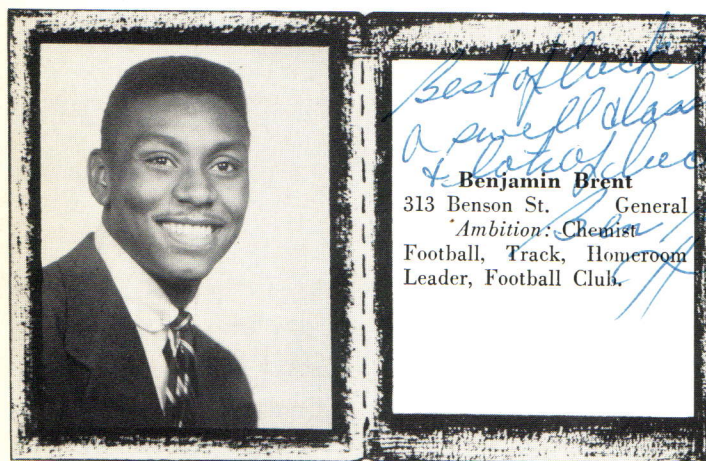 Best of luck
a swell class
& lots of luc
Benjamin Brent
313 Benson St. General
Ambition: Chemist
Football, Track, Homeroom
Leader, Football Club.
Ben